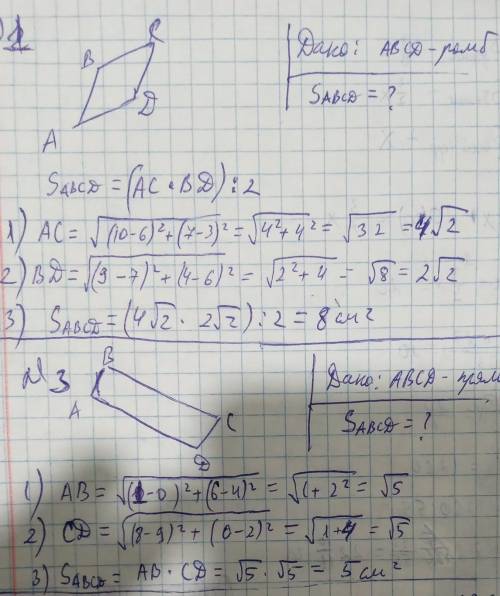 1
A B C D
Дано: ABCD - ромб
SABCD = ?
SABCD = (AC · BD) : 2
1) AC = √(10-6)²+(7-3)² = √4²+4² = √32 = 4√2
2) BD = √(9-7)²+(4-6)² = √2²+4 = √8 = 2√2
3) SABCD = (4√2 · 2√2) : 2 = 8 см²
№3
A B C D
Дано: ABCD - прям
SABCD = ?
1) AB = √(1-0)²+(6-4)² = √1+2² = √5
2) CD = √(8-9)²+(0-2)² = √1+4 = √5
3) SABCD = AB · CD = √5 · √5 = 5 см²